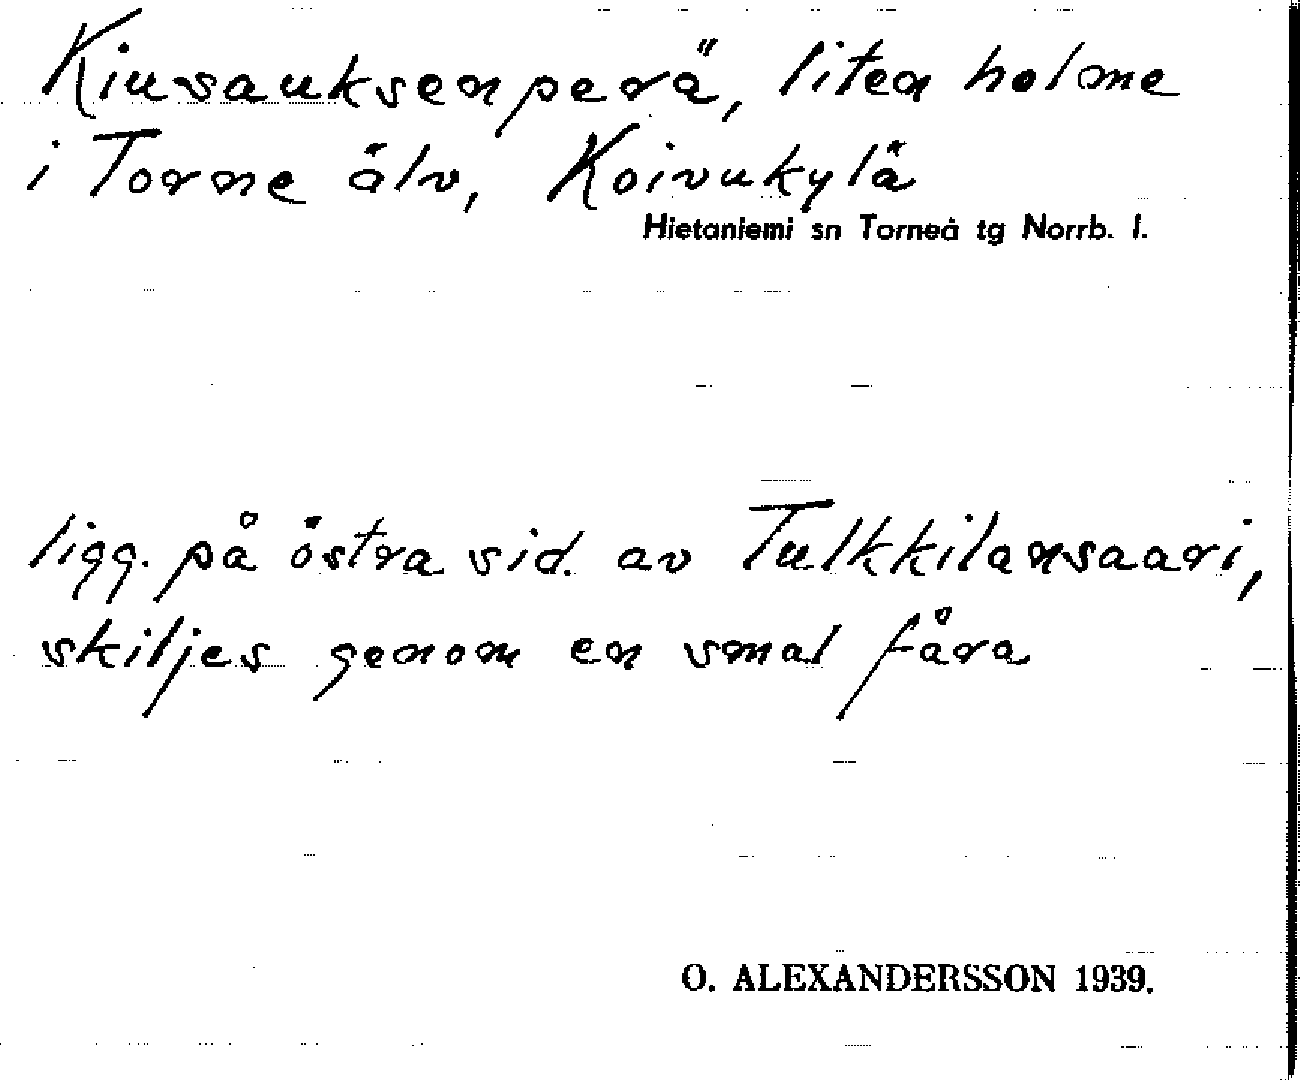 Kiusauksenperä, liten holme
i Torne älv, Koivukylä
Hietaniemi sn Torneå tg Norrb. l.
ligg. på östra sid. av Tulkkilansaari,
skiljes genom en smal fåra
O. ALEXANDERSSON 1939.